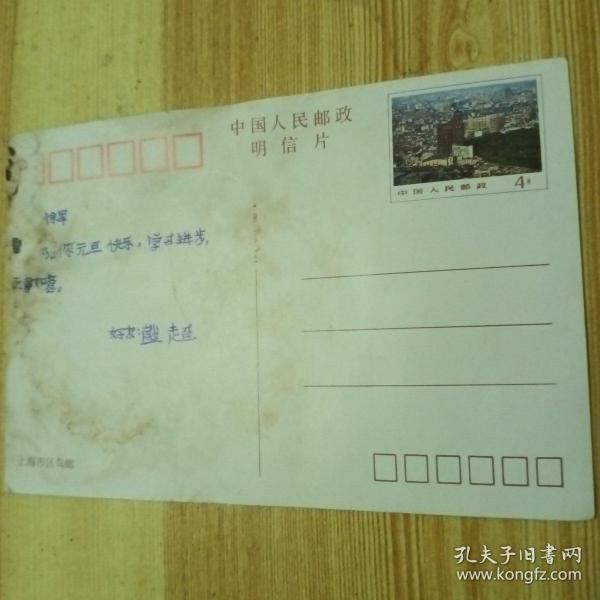 中国人民邮政
明信片
中国人民邮政 4分
你元旦快乐，学习进步，
好友：熊超
上海市区鸟瞰
孔夫子旧书网
www.kongfz.com